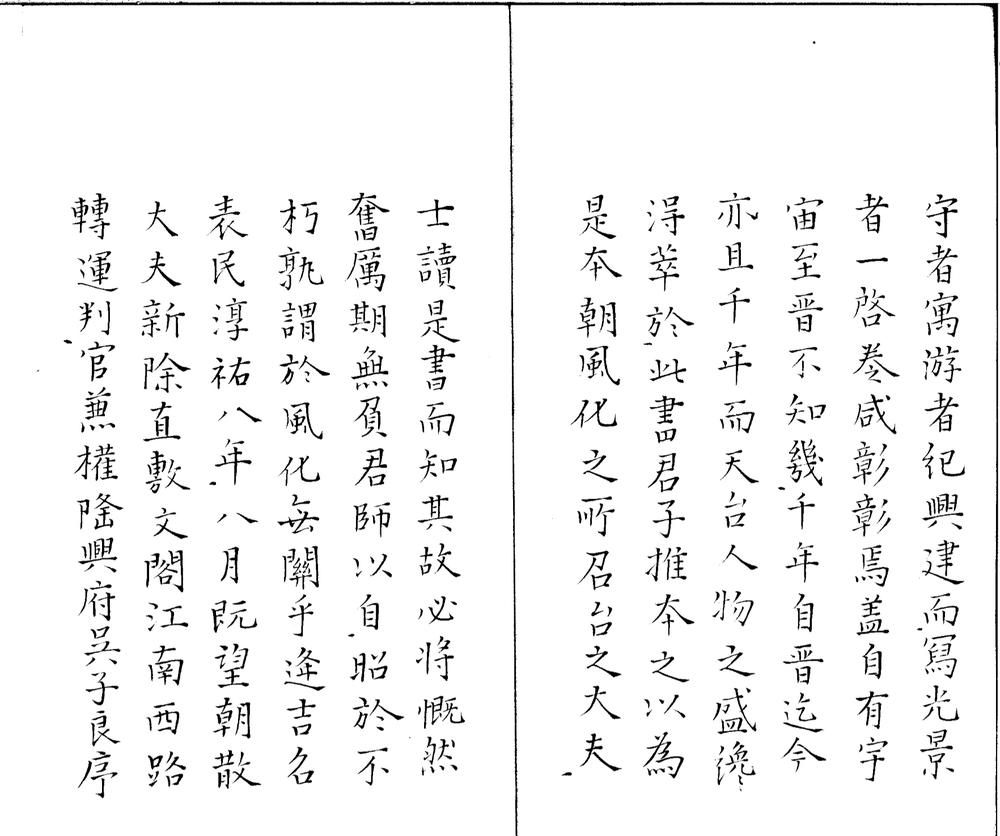 守者寓游者纪興建而冩光景
者一啓卷咸彰彰焉盖自有宇
宙至晋不知㡬千年自晋迄今
亦且千年而天台人物之盛纔
淂萃於此書君子推本之以為
是本朝風化之所召台之大夫
士讀是書而知其故必将慨然
奮厲期無負君師以自昭於不
朽孰謂於風化無關乎逄吉名
表民淳祐八年八月旣望朝散
大夫新除直敷文閣江南西路
轉運判官蕪權隆興府吳子良序